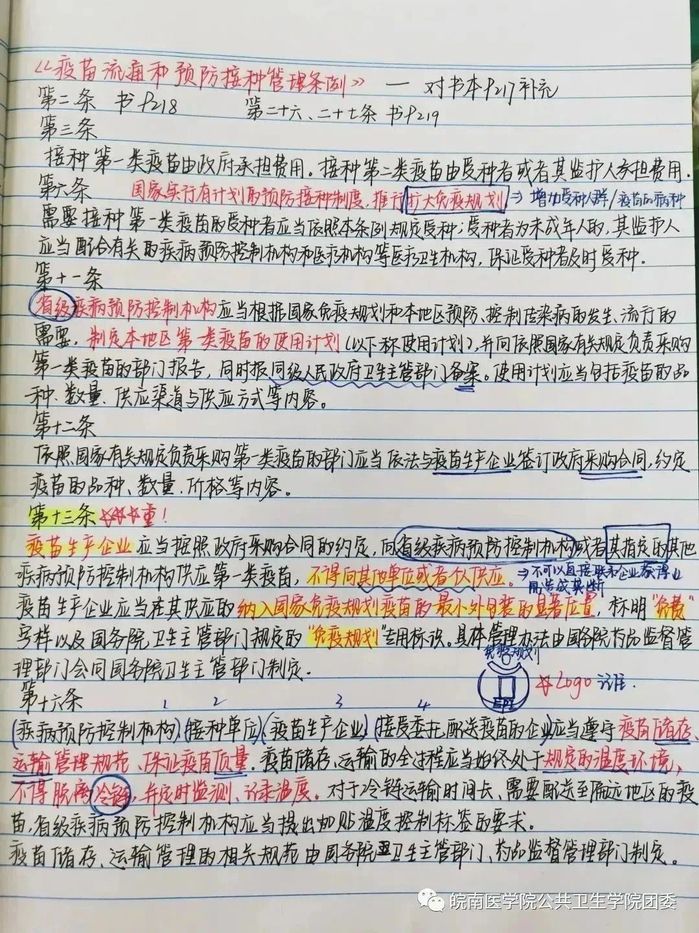 《疫苗流通和预防接种管理条例》 — 对书本P217补充
第二条 书P218 第二十六、二十七条 书P219
第三条
接种第一类疫苗由政府承担费用。接种第二类疫苗由受种者或者其监护人承担费用.
第六条 国家实行有计划的预防接种制度,推行扩大免疫规划 ⇒ 增加受种人群/疫苗的病种
需要接种第一类疫苗的受种者应当依照本条例规定受种;受种者为未成年人的,其监护人
应当配合有关的疾病预防控制机构和医疗机构等医疗卫生机构,保证受种者及时受种.
第十一条
省级疾病预防控制机构应当根据国家免疫规划和本地区预防、控制传染病的发生、流行的
需要,制定本地区第一类疫苗的使用计划(以下称使用计划),并向依照国家有关规定负责采购
第一类疫苗的部门报告,同时报同级人民政府卫生主管部门备案。使用计划应当包括疫苗的品
种、数量、供应渠道与供应方式等内容。
第十二条
依照国家有关规定负责采购第一类疫苗的部门应当依法与疫苗生产企业签订政府采购合同,约定
疫苗的品种、数量、价格等内容。
第十三条☆☆☆重!
疫苗生产企业应当按照政府采购合同的约定,向省级疾病预防控制机构或者其指定的其他
疾病预防控制机构供应第一类疫苗,不得向其他单位或者个人供应。⇒不可以直接联系企业获得
易造成垄断
疫苗生产企业应当在其供应的纳入国家免疫规划疫苗的最小外包装的显著位置,标明"免费"
字样以及国务院卫生主管部门规定的"免疫规划"专用标识。具体管理办法由国务院药品监督管
理部门会同国务院卫生主管部门制定.
免疫规划
☆Logo
第十六条 1 2 3 4
(疾病预防控制机构)、(接种单位)、(疫苗生产企业)、(接受委托配送疫苗的企业)应当遵守疫苗储存、
运输管理规范,保证疫苗质量.疫苗储存、运输的全过程应当始终处于规定的温度环境,
不得脱离冷链,并定时监测、记录温度。对于冷链运输时间长、需要配送至偏远地区的疫
苗,省级疾病预防控制机构应当提出加贴温度控制标签的要求.
疫苗储存、运输管理的相关规范由国务院卫生主管部门、药品监督管理部门制定。
皖南医学院公共卫生学院团委